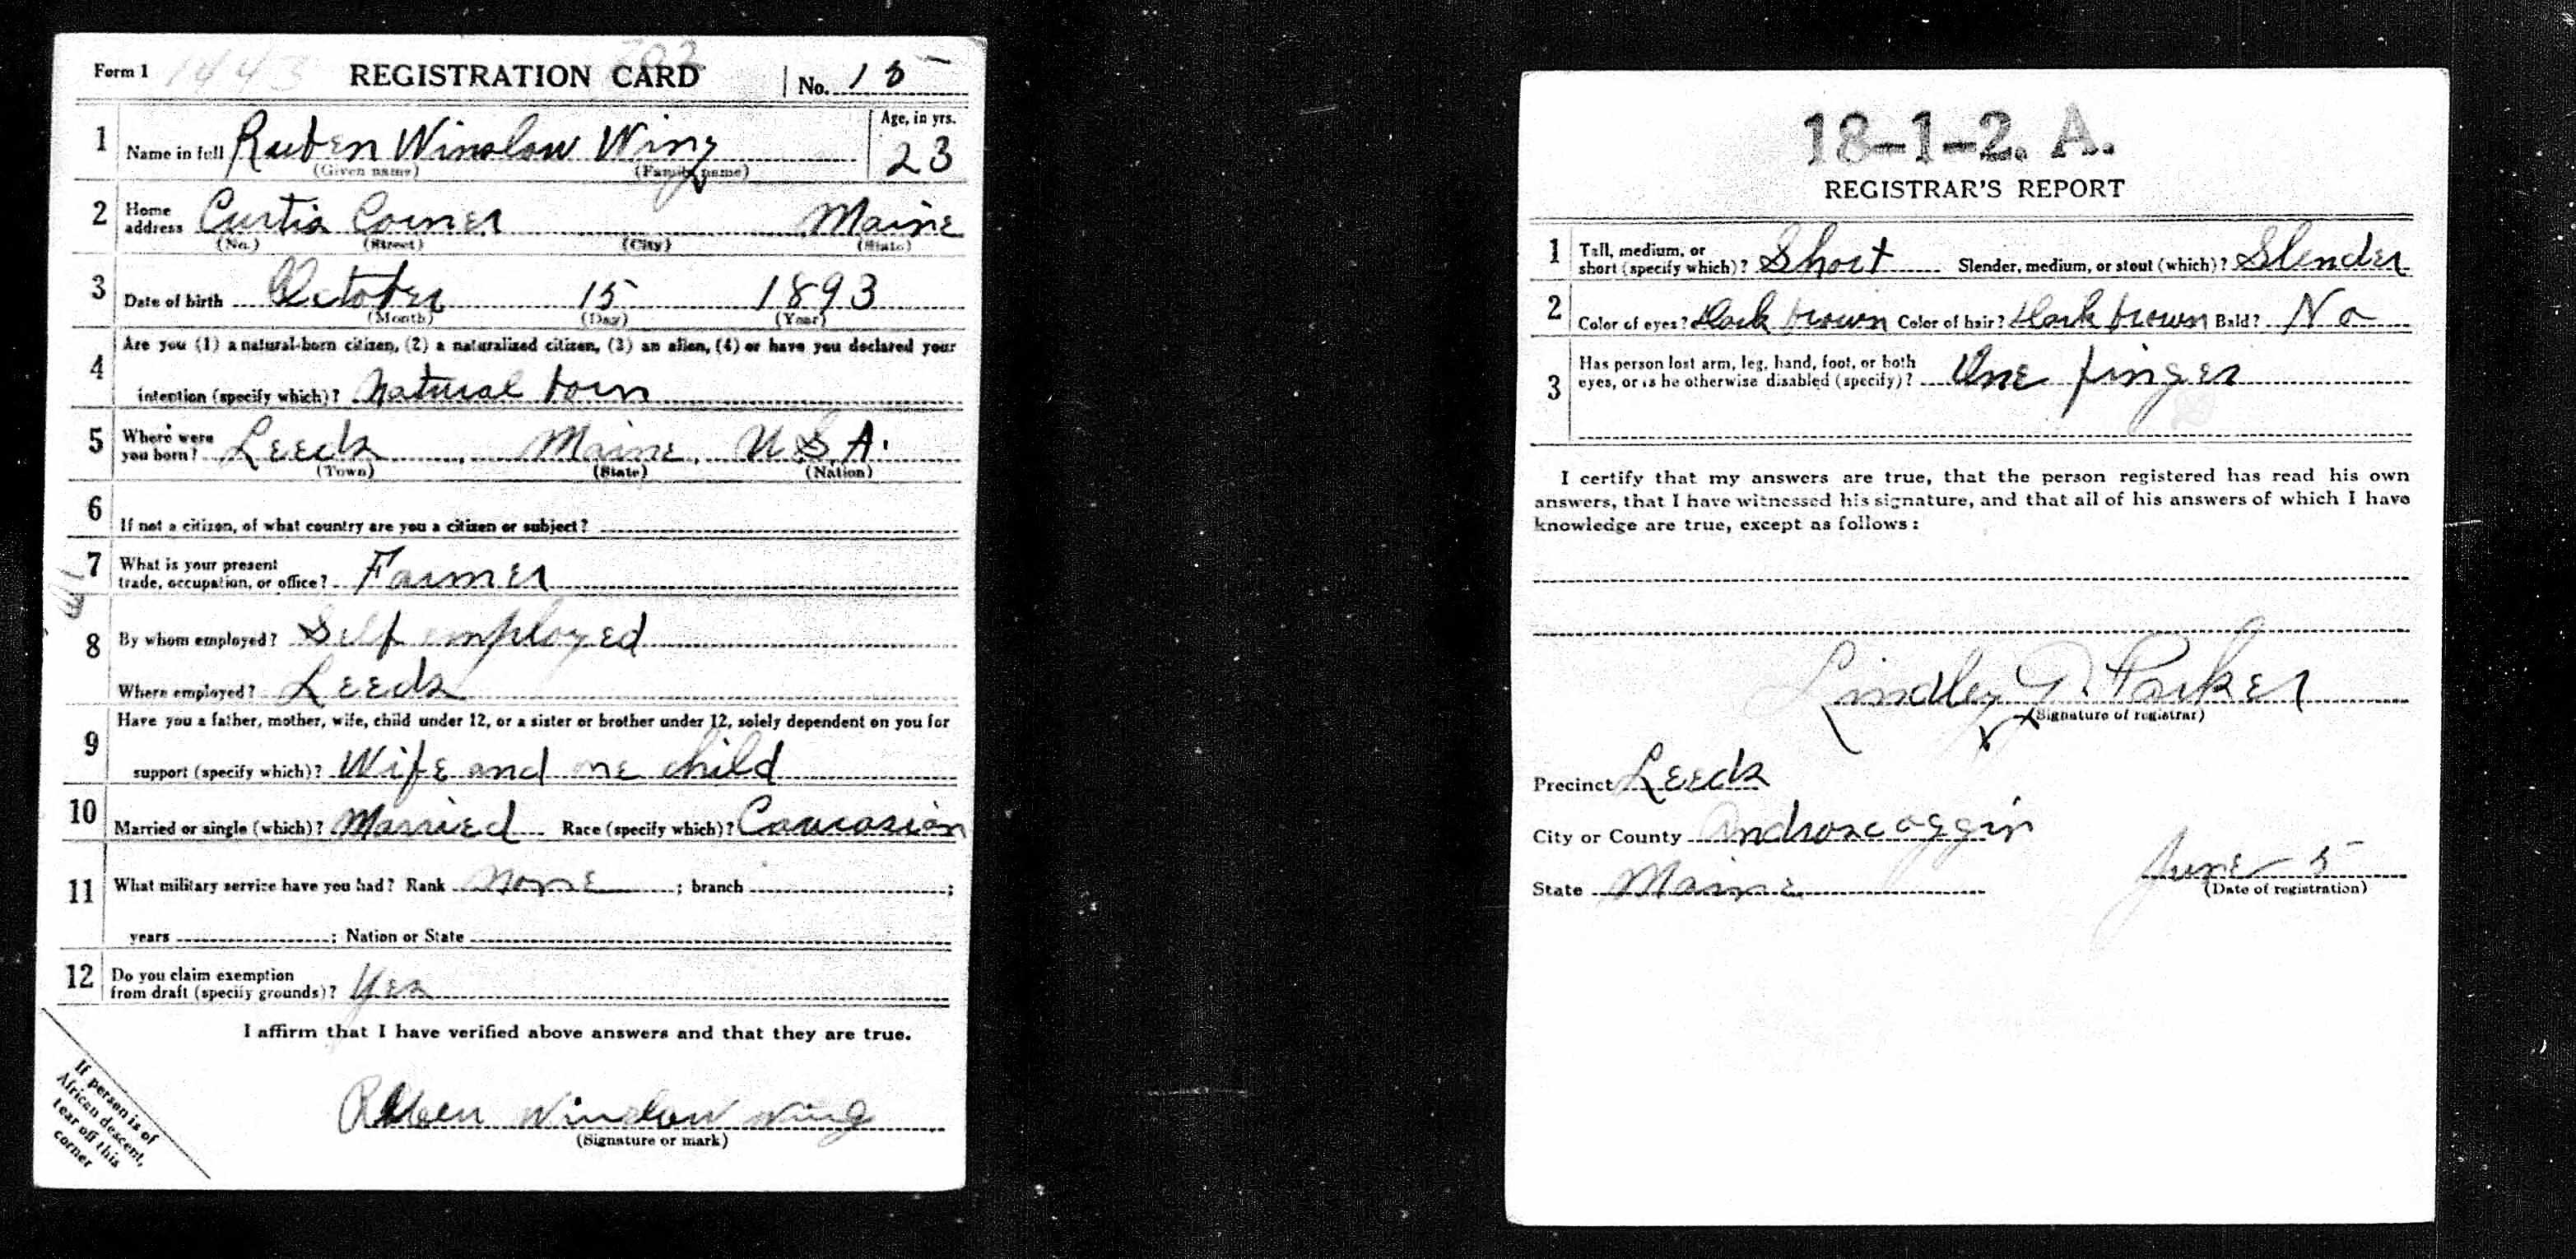 Form 1 1443 REGISTRATION CARD 202 No. 15
1 Name in full Ruben Winslow Wing Age, in yrs. 23
(Given name) (Family name)
2 Home address Curtis Corner Maine
(No.) (Street) (City) (State)
3 Date of birth October 15 1893
(Month) (Day) (Year)
4 Are you (1) a natural-born citizen, (2) a naturalized citizen, (3) an alien, (4) or have you declared your
intention (specify which)? Natural born
5 Where were you born? Leeds, Maine, U.S.A.
(Town) (State) (Nation)
6 If not a citizen, of what country are you a citizen or subject?
7 What is your present
trade, occupation, or office? Farmer
8 By whom employed? Self employed
Where employed? Leeds
9 Have you a father, mother, wife, child under 12, or a sister or brother under 12, solely dependent on you for
support (specify which)? Wife and one child
10 Married or single (which)? Married Race (specify which)? Caucasian
11 What military service have you had? Rank None ; branch ;
years ; Nation or State
12 Do you claim exemption
from draft (specify grounds)? Yes
I affirm that I have verified above answers and that they are true.
Ruben Winslow Wing
(Signature or mark)
If person is of
African descent,
tear off this
corner
18-1-2. A.
REGISTRAR'S REPORT
1 Tall, medium, or
short (specify which)? Short Slender, medium, or stout (which)? Slender
2 Color of eyes? Dark brown Color of hair? Dark brown Bald? No
3 Has person lost arm, leg, hand, foot, or both
eyes, or is he otherwise disabled (specify)? One finger
I certify that my answers are true, that the person registered has read his own
answers, that I have witnessed his signature, and that all of his answers of which I have
knowledge are true, except as follows:
Lindley Parker
(Signature of registrar)
Precinct Leeds
City or County Androscoggin
State Maine June 5
(Date of registration)